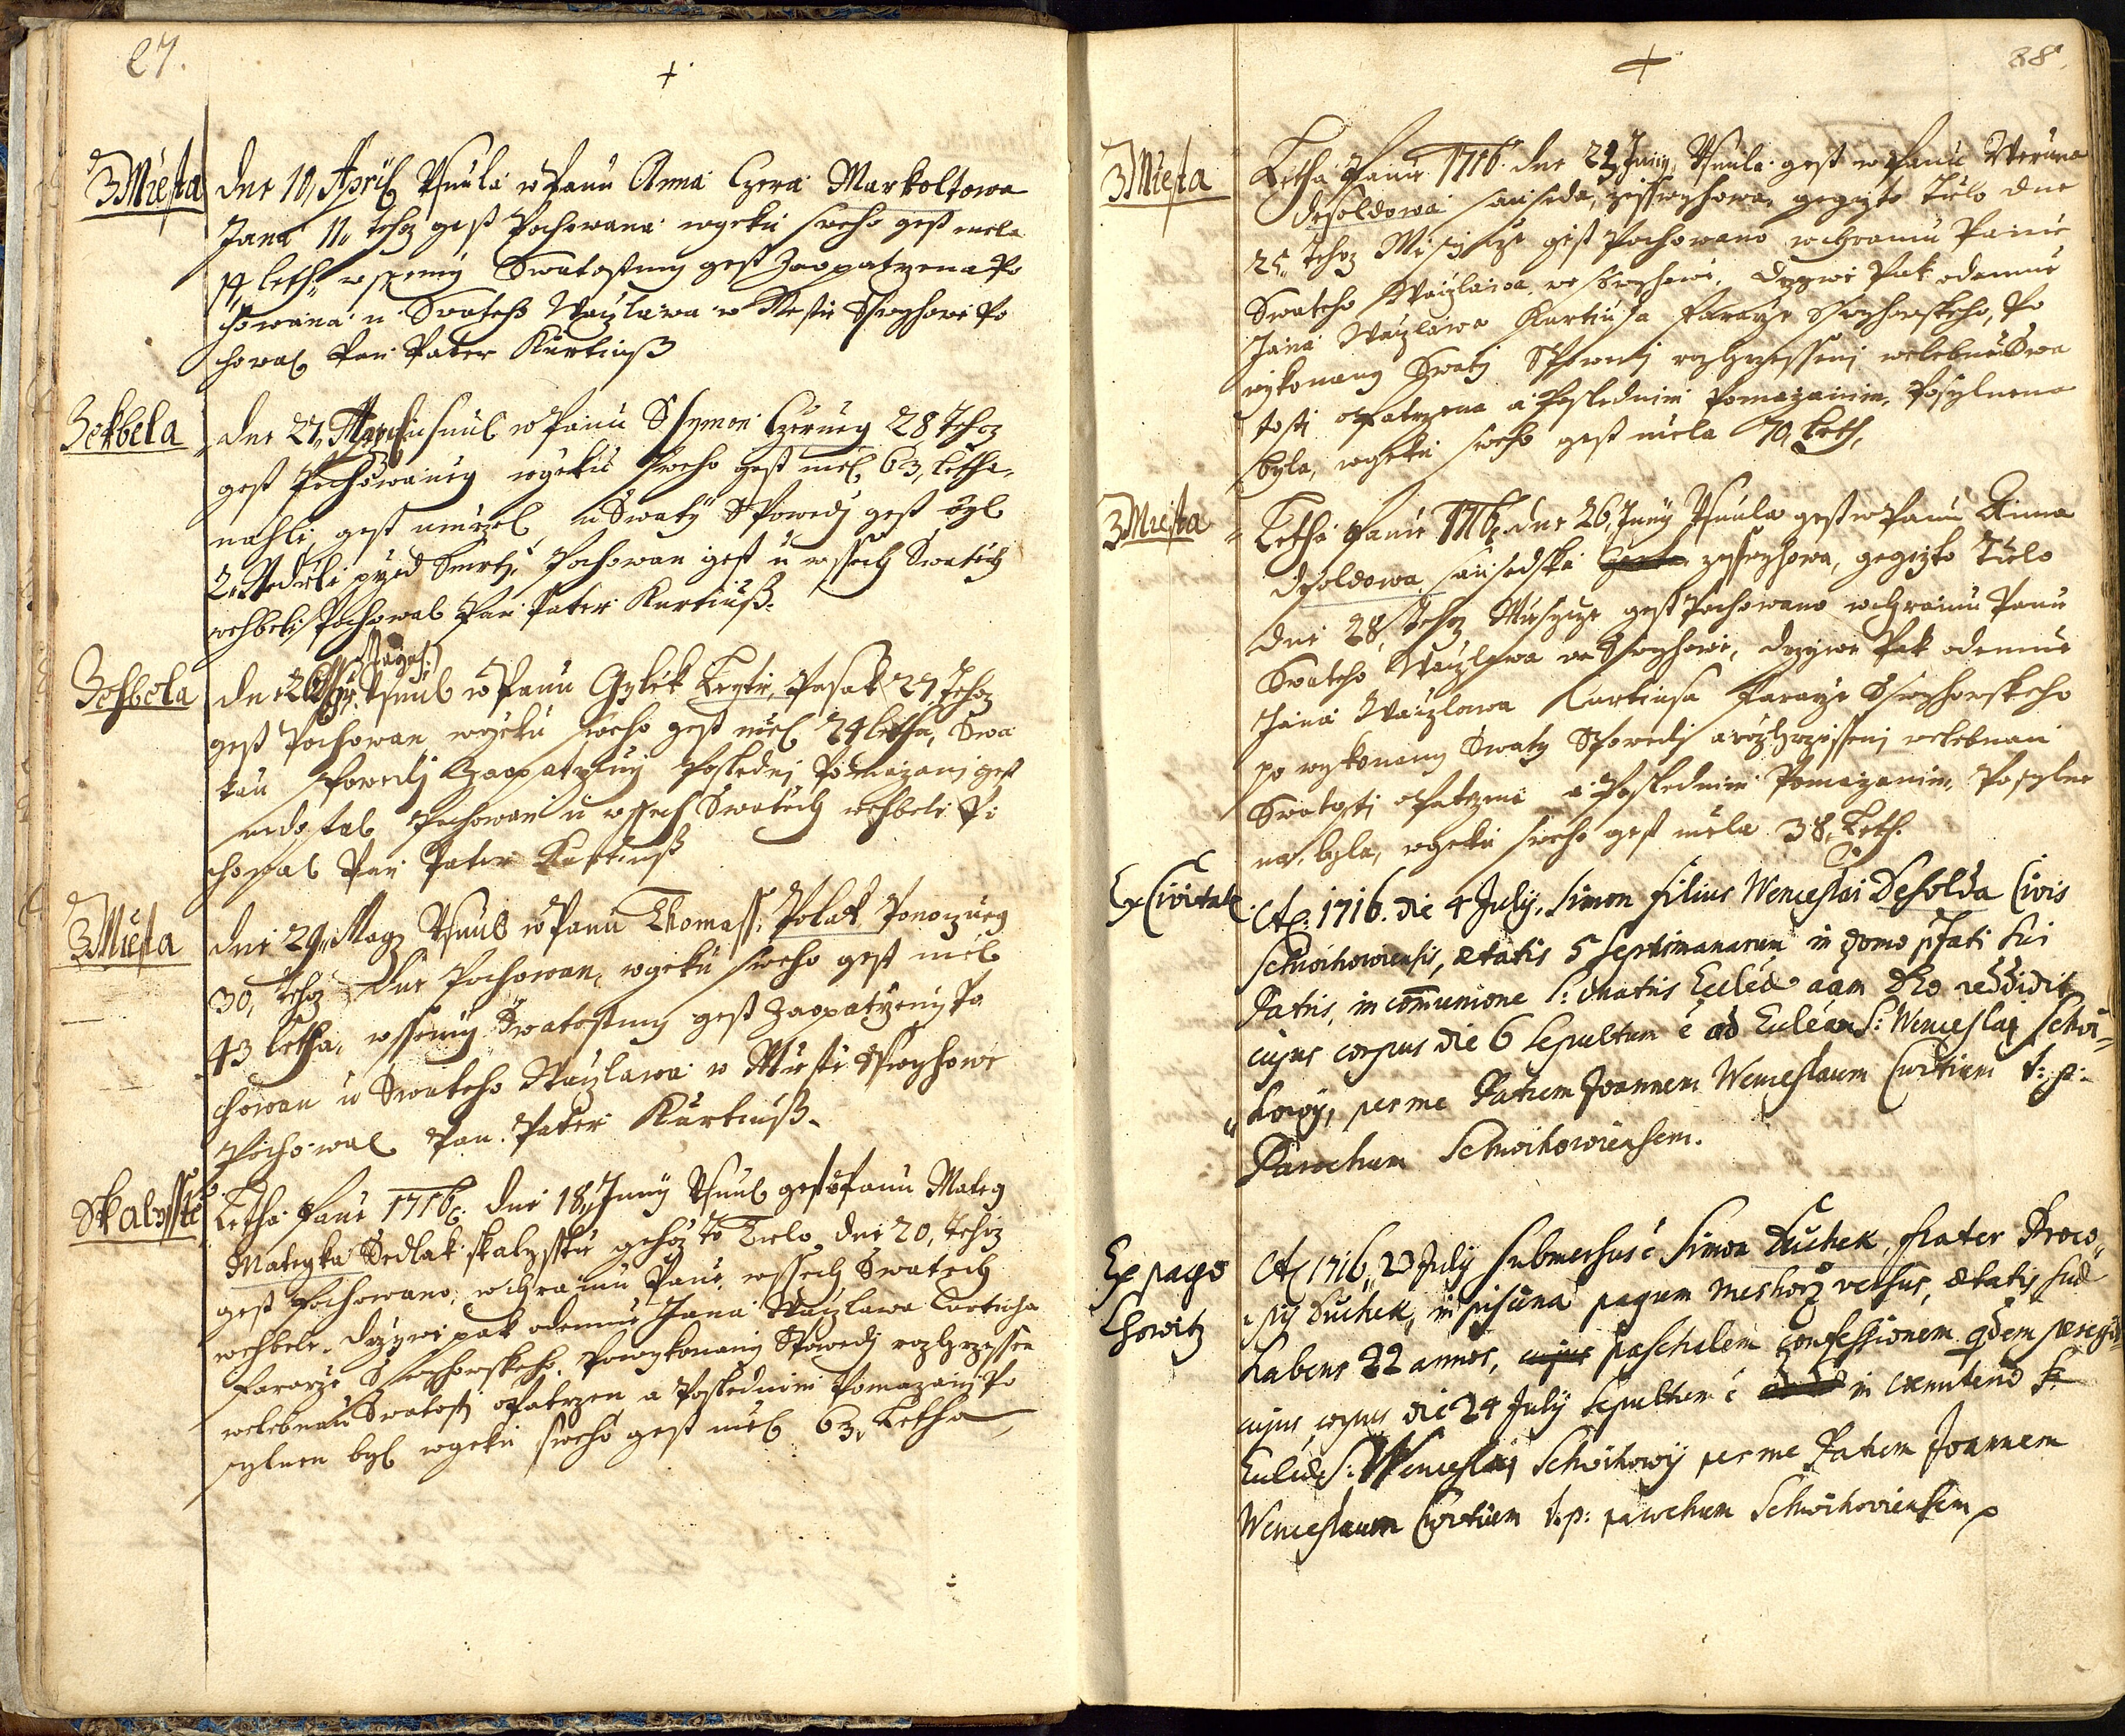 27.
+
Z Miesta
dne 10, Aprilˢ Usnula w Panu Anna Czera Markoltowa
Jana 11. tehoz gest Pochowana wgeku sweho gest mela
14 leth, wssemy Swatostmy gest Zaopatrzena Po
chowana u Swateho Waczlawa w Miestie Sswyhowie Po
chowal Pan Pater Kurtiuß
Zekbela
dne 27, usnul w Panu Ssymon Czerney 28 Tehoz
gest Pochowaney wgeku sweho gest miel 63, letha,
nahle gest umrzel u Swaty Spowedj gest byl
2. Nedieli przed Smrtj, Pochowan gest u wssech Swatych
wehbeli Pochowal Pan Pater Kurtiuß.
Zehbela
Magy
dne 26 Usnul w Panu Gylek Pasak 27 Tehoz
gest Pochowan wgeku sweho gest miel 24 letha, Swa
tau Spowedj Zaopatrzeny Poslednj Pomazanj gest
nedostal Pochowan u wssech Swatych wehbeli Po
chowal Pan Pater Kurtiuß
Z Miesta
dne 29. Magy Usnul w Panu Thomass Polak
30, Tehoz dne Pochowan, wgeku sweho gest miel
43 letha, wssemy Swatostmy gest Zaopatrzeny Po
chowan u Swateho Waczlawa w Miestie Sswyhowe
Pochowal Pan Pater Kurtiuß.
Skalyssťe
Letha Panie 1716. dne 18, Juny Usnul gest w Panu Mateg
Mategka Sedlak skalyssky gehoz to Tielo dne 20, Tehoz
gest Pochowano, w chramu Panie wssech Swatych
wehbele. drzywe pak odemne Jana Waczlawa Curtiusa
Fararze Sswyhowskeho. Powykonany Spowedj rozhrzessen
welebnau Swatostj opatrzen a Poslednim Pomazanj Po
sylnen byl wgeku sweho gest miel 63, Letha
28.
+
Z Miesta
Letha Panie 1716. dne 23 Juny, Usnula gest w Panu
desoldowa sauseda, zesswyhowa, gegizto Tielo dne
25, Tehoz Miesyce gest Pochowano w chramu Panie
Swateho Waczlawa, we Sswyhowie, drzywe Pak odemne
Jana Waczlawa Kurtiusa Fararze Sswyhowskeho, Po
wykonany Swaty Spowedj rozhrzesseny welebnau Swa
tosti opatrzena a Poslednim Pomazanim, Posylnena
byla, wgeku sweho gest miela 70, Leth,
Z Miesta
Letha Panie 1716. dne 26, Juny Usnula gest w Panu Anna
desoldowa sausedska zesswyhowa, gegizto Tielo
dne 28, Tehoz Miesyce gest Pochowano w chramu Panu
Swateho Waczlawa we Sswyhowie, drzywe Pak odemne
Jana Waczlawa Curtiusa Fararze Sswyhowskeho
po wykonany Swaty Spowedj a rozhrzesseny welebnau
Swatostj opatrzena a Poslednim Pomazanim, Posylne
na, byla, wgeku sweho gest miela 38, Leth.
Ex Civitate.
Aō. 1716. die 4 July, Simon filius Wenceslai Desolda Civis
Schwihowiensis, ætatis 5 septimanarum in domo pfati sui
Patris, in com̄unione S: matris Ecclæ aām Deo reddidit
cujus corpus die 6 sepultum ē ad Eccleām S: Wenceslaj Schwi-
howÿ, per me Patrem Joannem Wenceslaum Curtium t: p:
Parochum Schwihowiensem.
Ex pago
Chowitz
Aō 1716, 23 July submersus ē Simon Duchek, frater Proco-
pij Duchek, in piscina pagum Meshorz versus, ætatis suæ
habens 22 annos, cujus paschalem confessionem qdem peregit
cujus corpus die 24 July sepultum ē in cæmiterio
Ecclæ S: Wenceslaj Schwihowÿ per me Patrem Joannem
Wenceslaum Curtium t. p: parochum Schwihoviensem